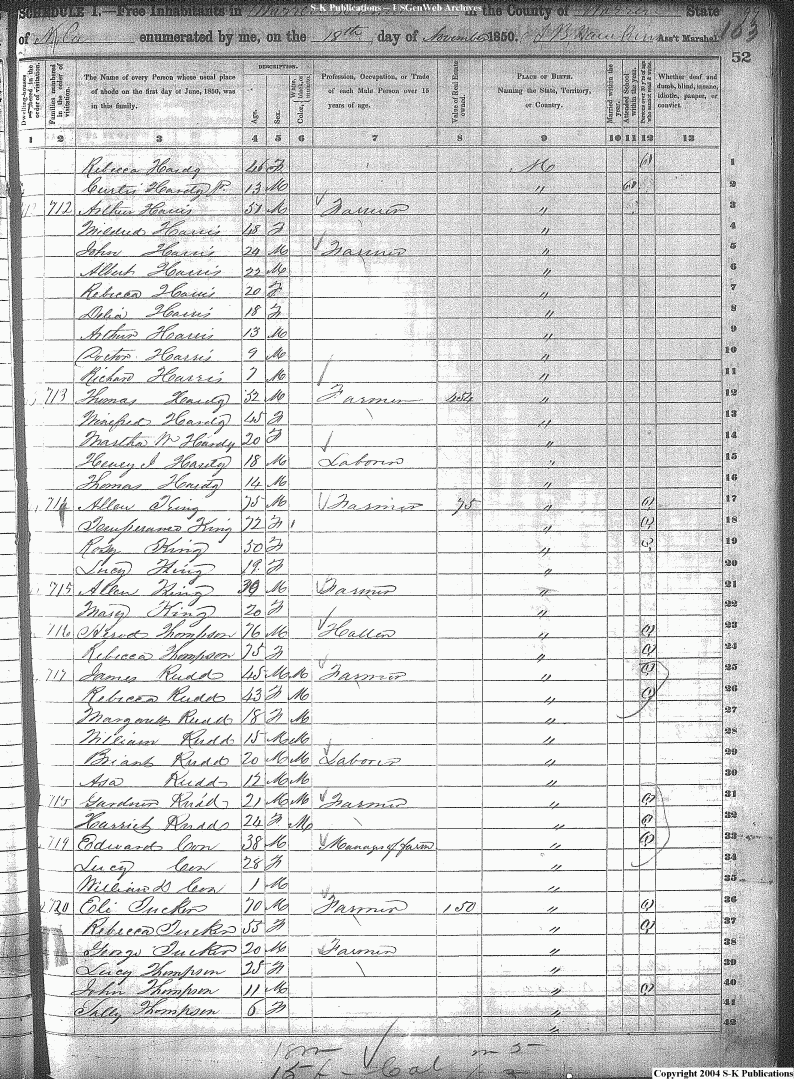 S-K Publications – USGenWeb Archives
SCHEDULE I.—Free Inhabitants in Warren in the County of Warren State
of N. Ca enumerated by me, on the 18th day of November 1850. Ass't Marshal. 163
52
Dwelling-houses numbered in the order of visitation.
Families numbered in the order of visitation.
The Name of every Person whose usual place of abode on the first day of June, 1850, was in this family.
DESCRIPTION.
Age.
Sex.
Color, White, black, or mulatto.
Profession, Occupation, or Trade of each Male Person over 15 years of age.
Value of Real Estate owned.
PLACE OF BIRTH. Naming the State, Territory, or Country.
Married within the year.
Attended School within the year.
Persons over 20 y'rs of age who cannot read & write.
Whether deaf and dumb, blind, insane, idiotic, pauper, or convict.
1 2 3 4 5 6 7 8 9 10 11 12 13
Rebecca Hardy 46 F 1 1
Curtis Hardy 13 M " 1 2
712 Arthur Harris 51 M Farmer " 3
Mildred Harris 48 F " 4
John Harris 24 M Farmer " 5
Albert Harris 22 M " 6
Rebecca Harris 20 F " 7
Delia Harris 18 F " 8
Arthur Harris 13 M " 9
Doctor Harris 9 M " 10
Richard Harris 7 M " 11
713 Thomas Hardy 52 M Farmer 454 " 12
Winefred Hardy 45 F " 13
Martha W Hardy 20 F " 14
Henry J Hardy 18 M Laborer " 15
Thomas Hardy 14 M " 16
714 Allen King 75 M Farmer 75 " 1 17
Temperance King 72 F " 1 18
Roxy King 50 F " 1 19
Lucy King 19 F " 20
715 Allen King 39 M Farmer " 21
Mary King 20 F " 22
716 Thompson 76 M Hatter " 1 23
Rebecca Thompson 75 F " 1 24
717 James Rudd 45 M M Farmer " 1 25
Rebecca Rudd 43 F M " 1 26
Margarett Rudd 18 F M " 27
William Rudd 15 M M " 28
Briant Rudd 20 M M Laborer " 29
Asa Rudd 12 M M " 30
718 Gardner Rudd 21 M M Farmer " 1 31
Harriet Rudd 24 F M " 1 32
719 Edward Con 38 M Manager of farm " 1 33
Lucy Con 28 F " 34
William D Con 1 M " 35
720 Eli Tucker 70 M Farmer 150 " 1 36
Rebecca Tucker 55 F " 1 37
George Tucker 20 M Farmer " 38
Lucy Thompson 25 F " 39
John Thompson 11 M " 1 40
Sally Thompson 6 F " 41
" 42
Copyright 2004 S-K Publications